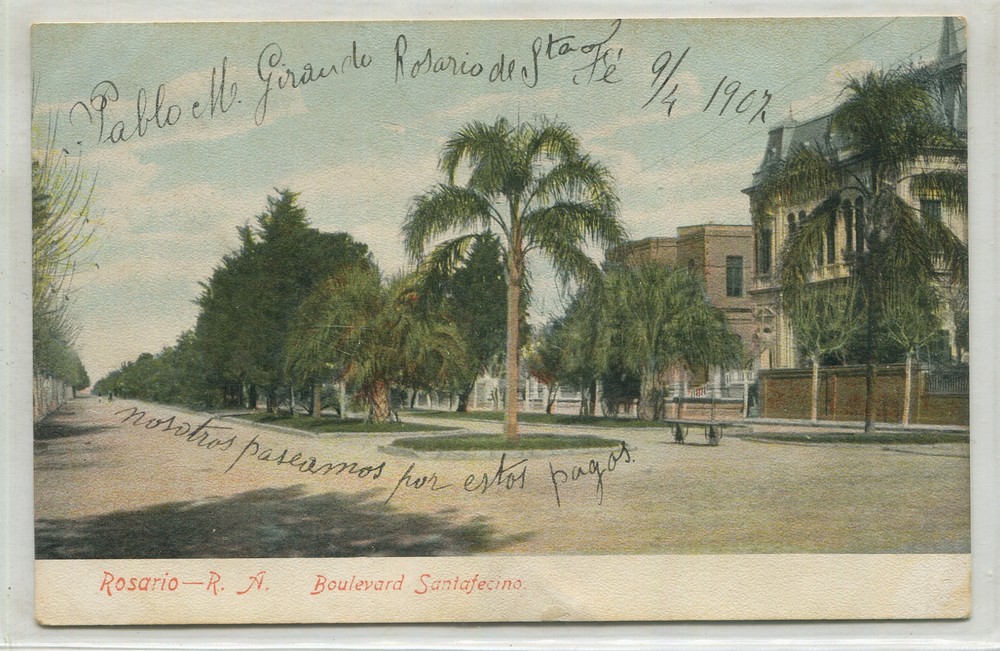 Pablo M. Girando Rosario de Sta Fé 9/4 1907
nosotros paseamos por estos pagos.
Rosario—R. A. Boulevard Santafecino.